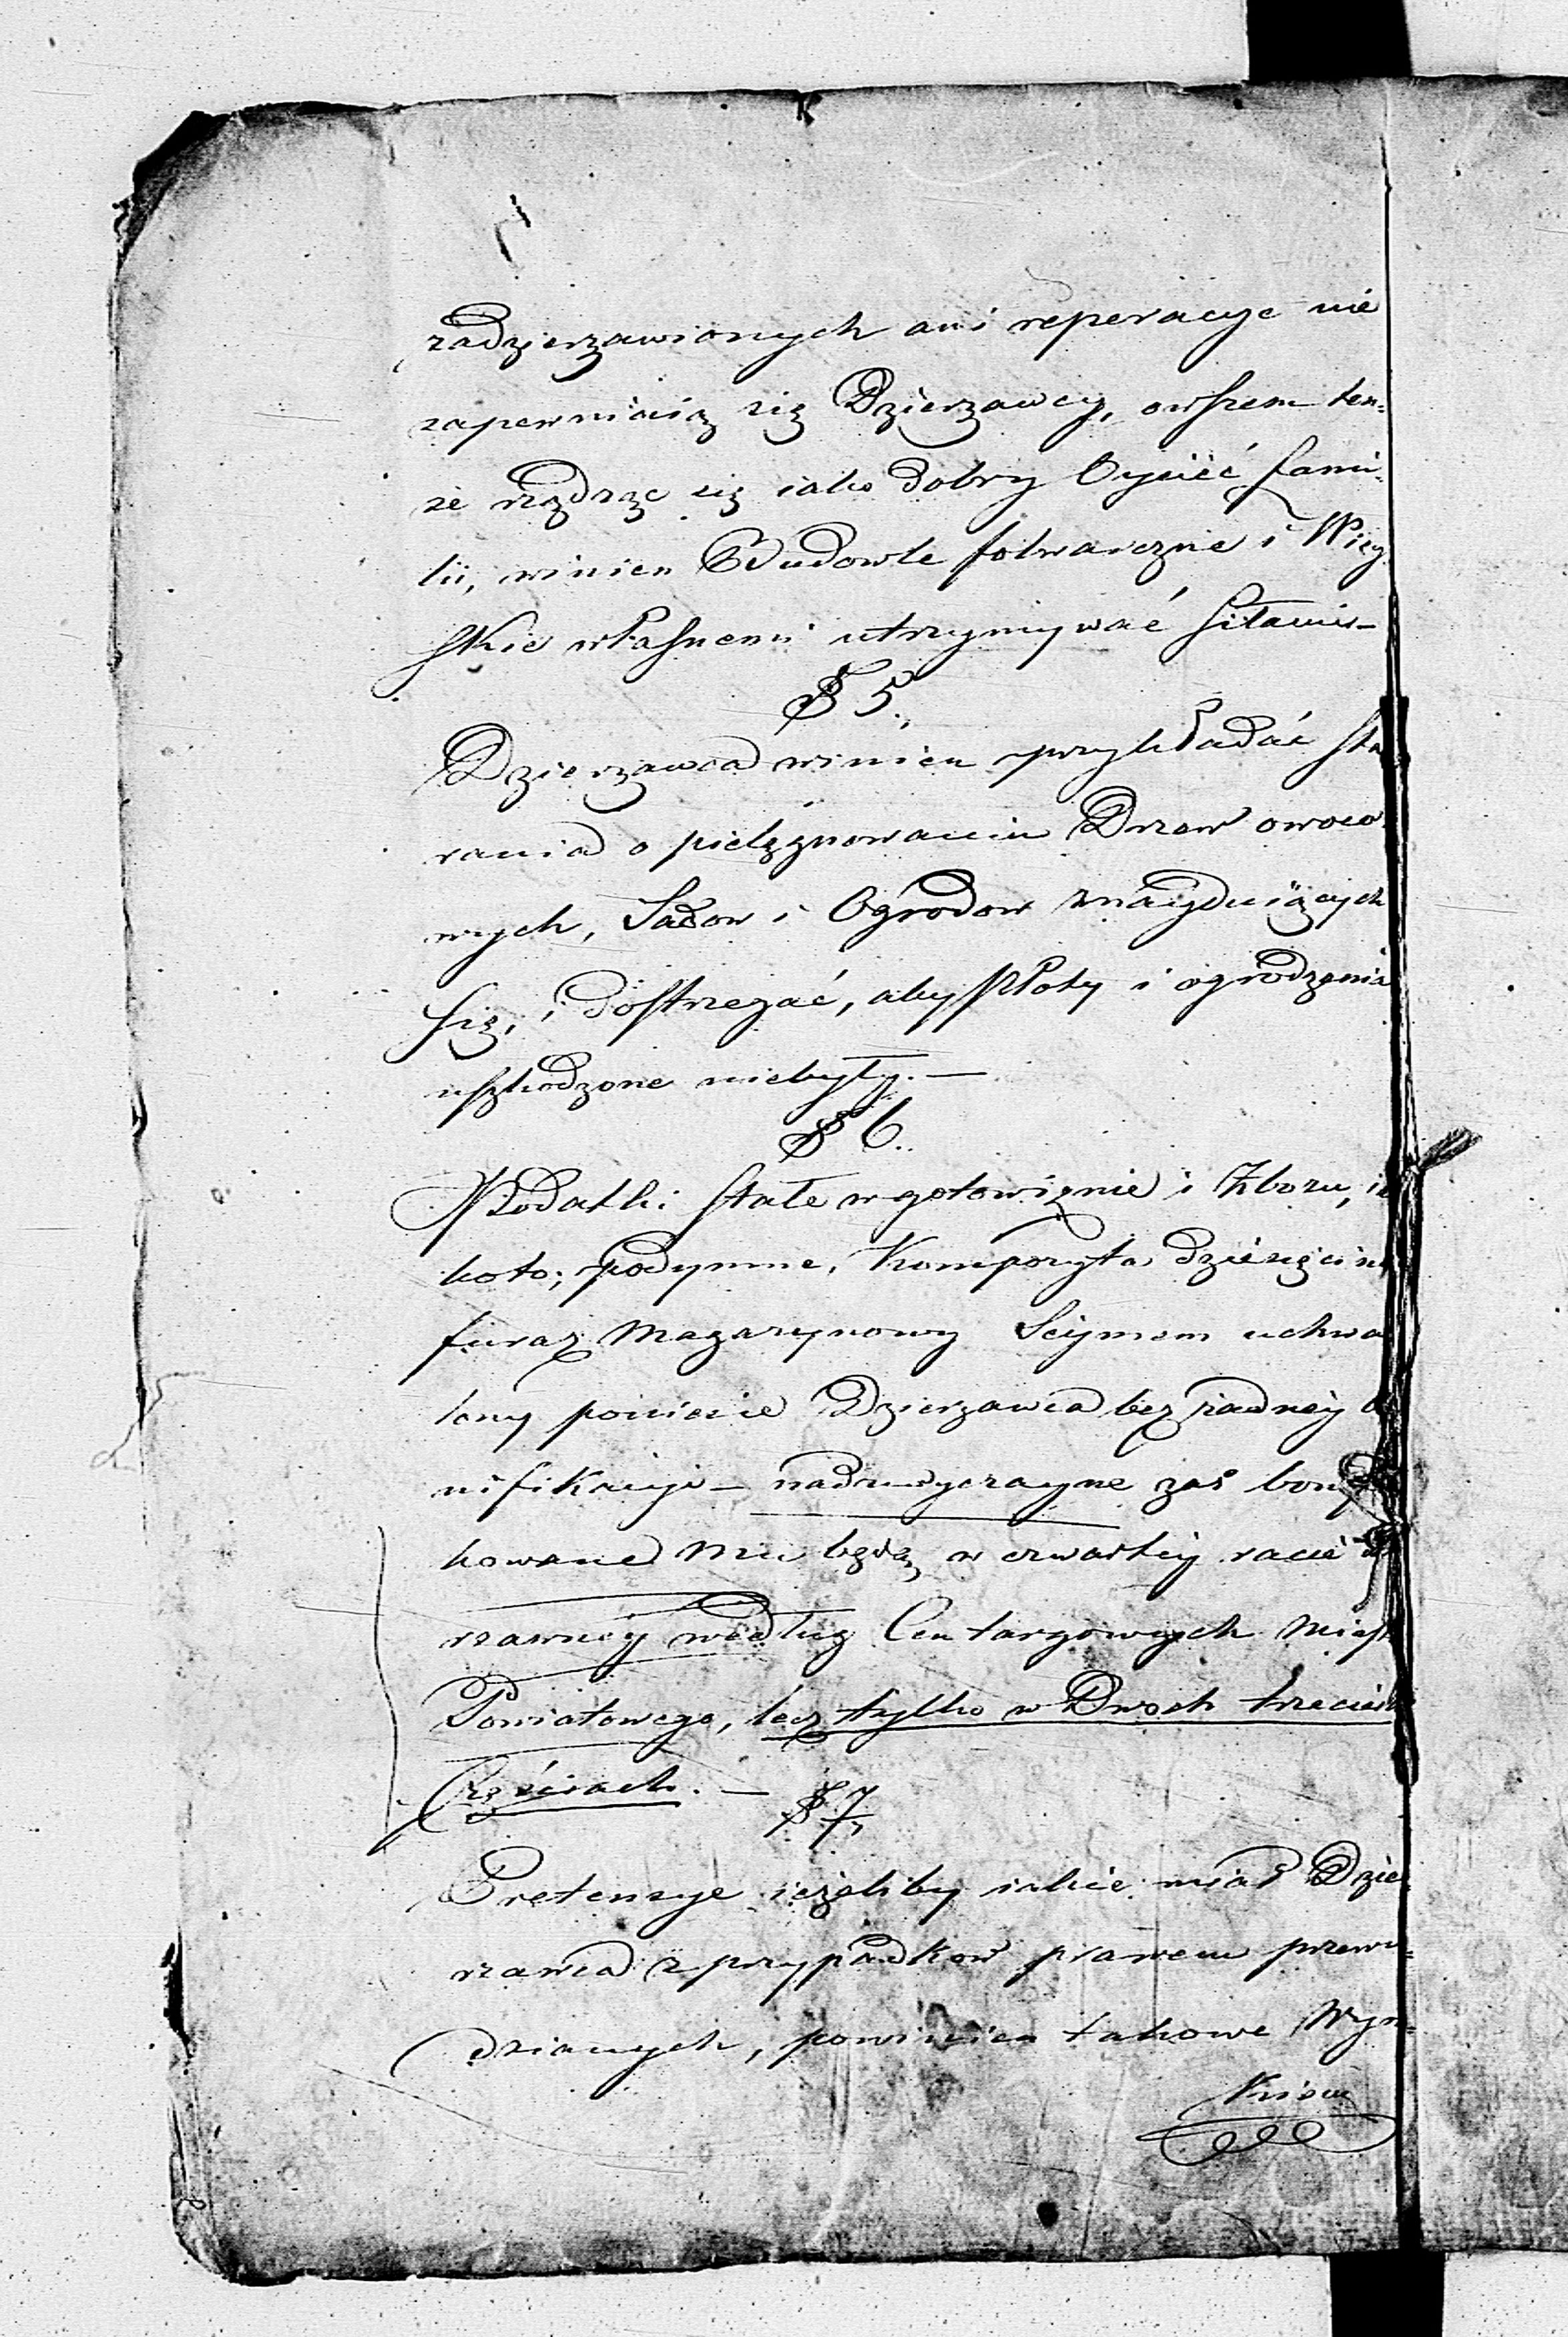 zadzierzawionych ani reperacye nie
zapewniaią się Dzierzawcy, owszem ten=
ze rządząc się iako dobry Oyciéć fami=
lii, winien Budowle folwarczne i Wiey
skie własnemi utrzymywać siłami –
§ 5.
Dzierzawca winien przykładać sta
rania o pielęgnowaniu Drzew owoco
wych, Sadow i Ogrodow znayduiących
się, i dostrzegać, aby płoty i ogrodzenia
uszkodzone niebyły. –
§ 6.
Podatki stałe w gotowiźnie i Zbozu, ia
koto; podymne, Komporyta dziesięcina
furaz Magazynowy Seymem uchwa
lony poniesie Dzierzawca bez zadnéy bo
nifikacyi – nadzwyczayne zaś bonyfi
kowane Mu będą, w czwartéy racie dzie
rzawnéy według Cen targowych Miasta
Powiatowego, lecz tylko w Dwoch trzecich
Częściach. –
§ 7,
Pretensye ieżeliby iakie miał Dzie
rzawca z przypadkow prawem przewi=
dzianych, powinien takowe Wyn=